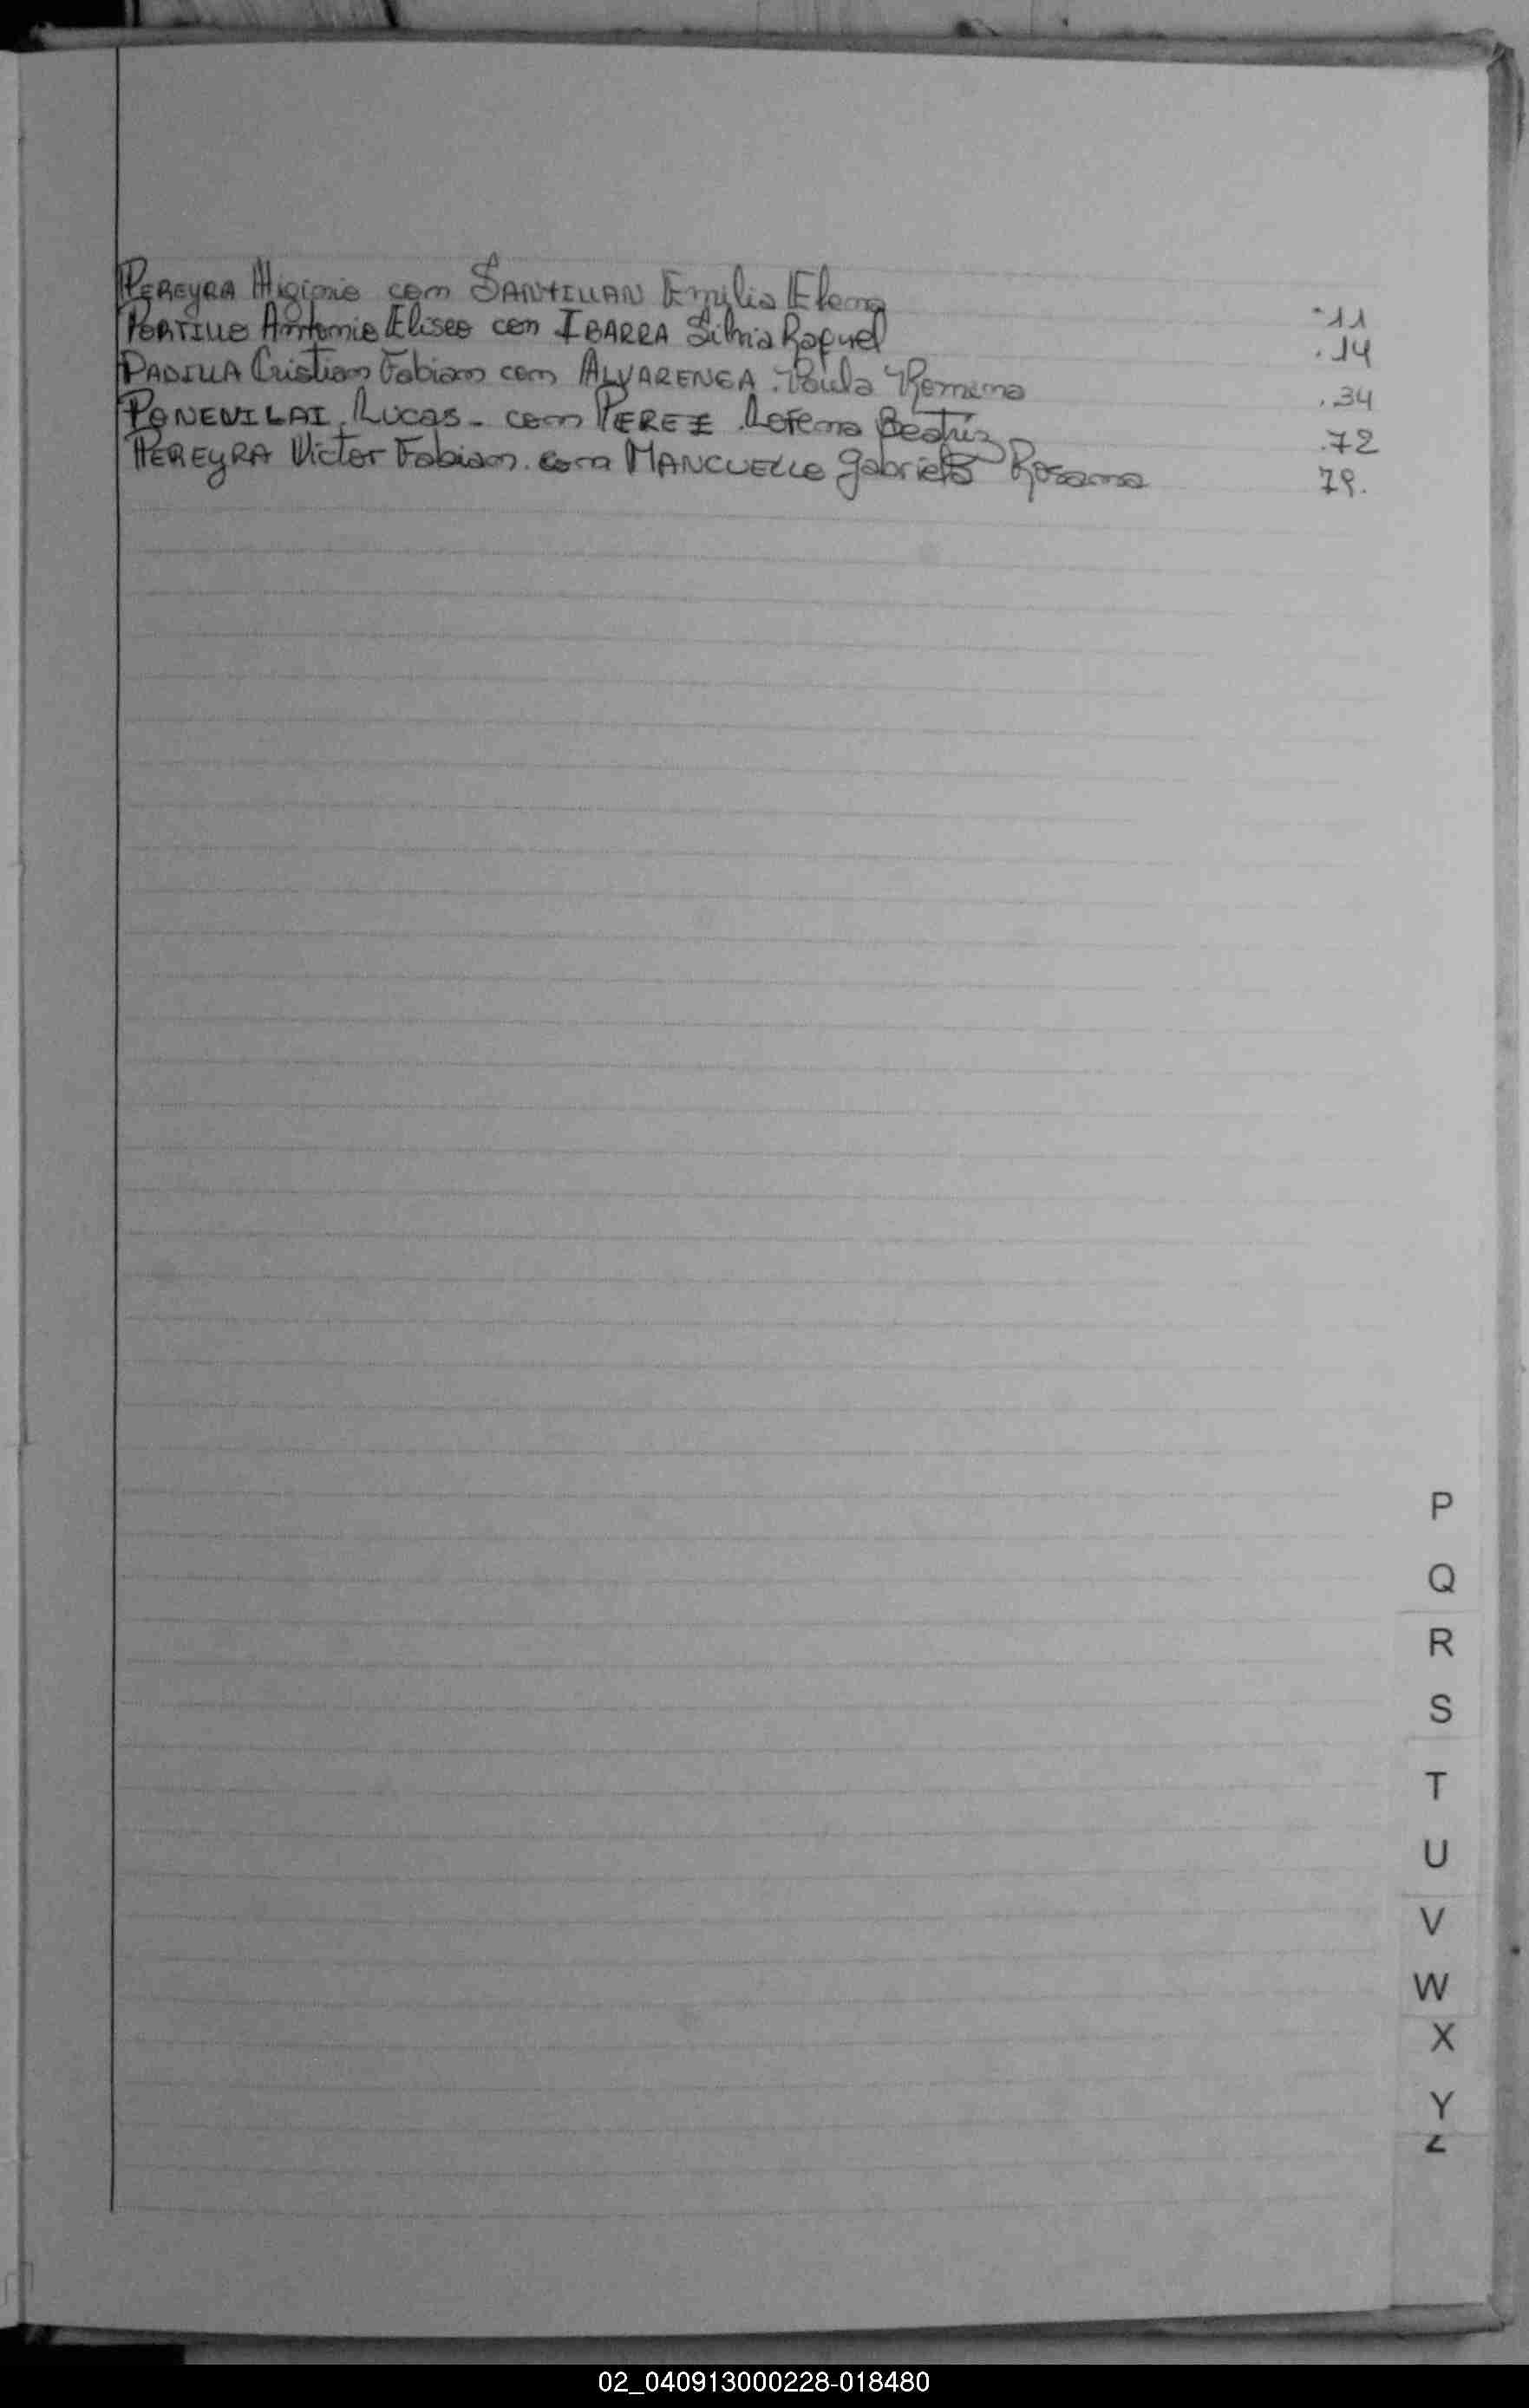 PEREYRA Higinio con SANTILLAN Emilia Elena -11
PORTILLO Antonio Eliseo con IBARRA Silvia Raquel .14
PADILLA Cristian Fabian con ALVARENGA. Paula Romina .34
Lucas - con PEREZ Lorena Beatriz .72
PEREYRA Victor Fabian. con MANCUELLO Gabriela Rosana 79.
P
Q
R
S
T
U
V
W
X
Y
Z
02_040913000228-018480